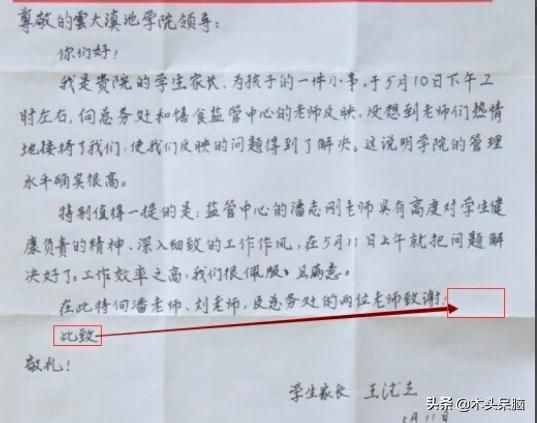 尊敬的雲大滇池学院领导:
你们好!
我是贵院的学生家长,为孩子的一件小事,于5月10日下午2
时左右,向总务处和膳食监管中心的老师反映,没想到老师们热情
地接待了我们,使我们反映的问题得到了解决。这说明学院的管理
水平确实很高。
特别值得一提的是,监管中心的潘志刚老师具有高度对学生健
康负责的精神、深入细致的工作作风,在5月11日上午就把问题解
决好了。工作效率之高,我们很佩服、且满意。
在此特向潘老师、刘老师,及总务处的两位老师致谢.
此致
敬礼!
学生家长 王
月11日
头条@木头呆脑